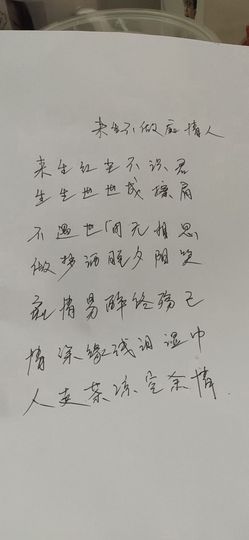 来生不做痴情人
来生红尘不识君
生生世世成擦肩
不遇世间无相思
做梦洒脱夕阳笑
痴情易醉终殇己
情深缘浅泪湿巾
人走茶凉空余情